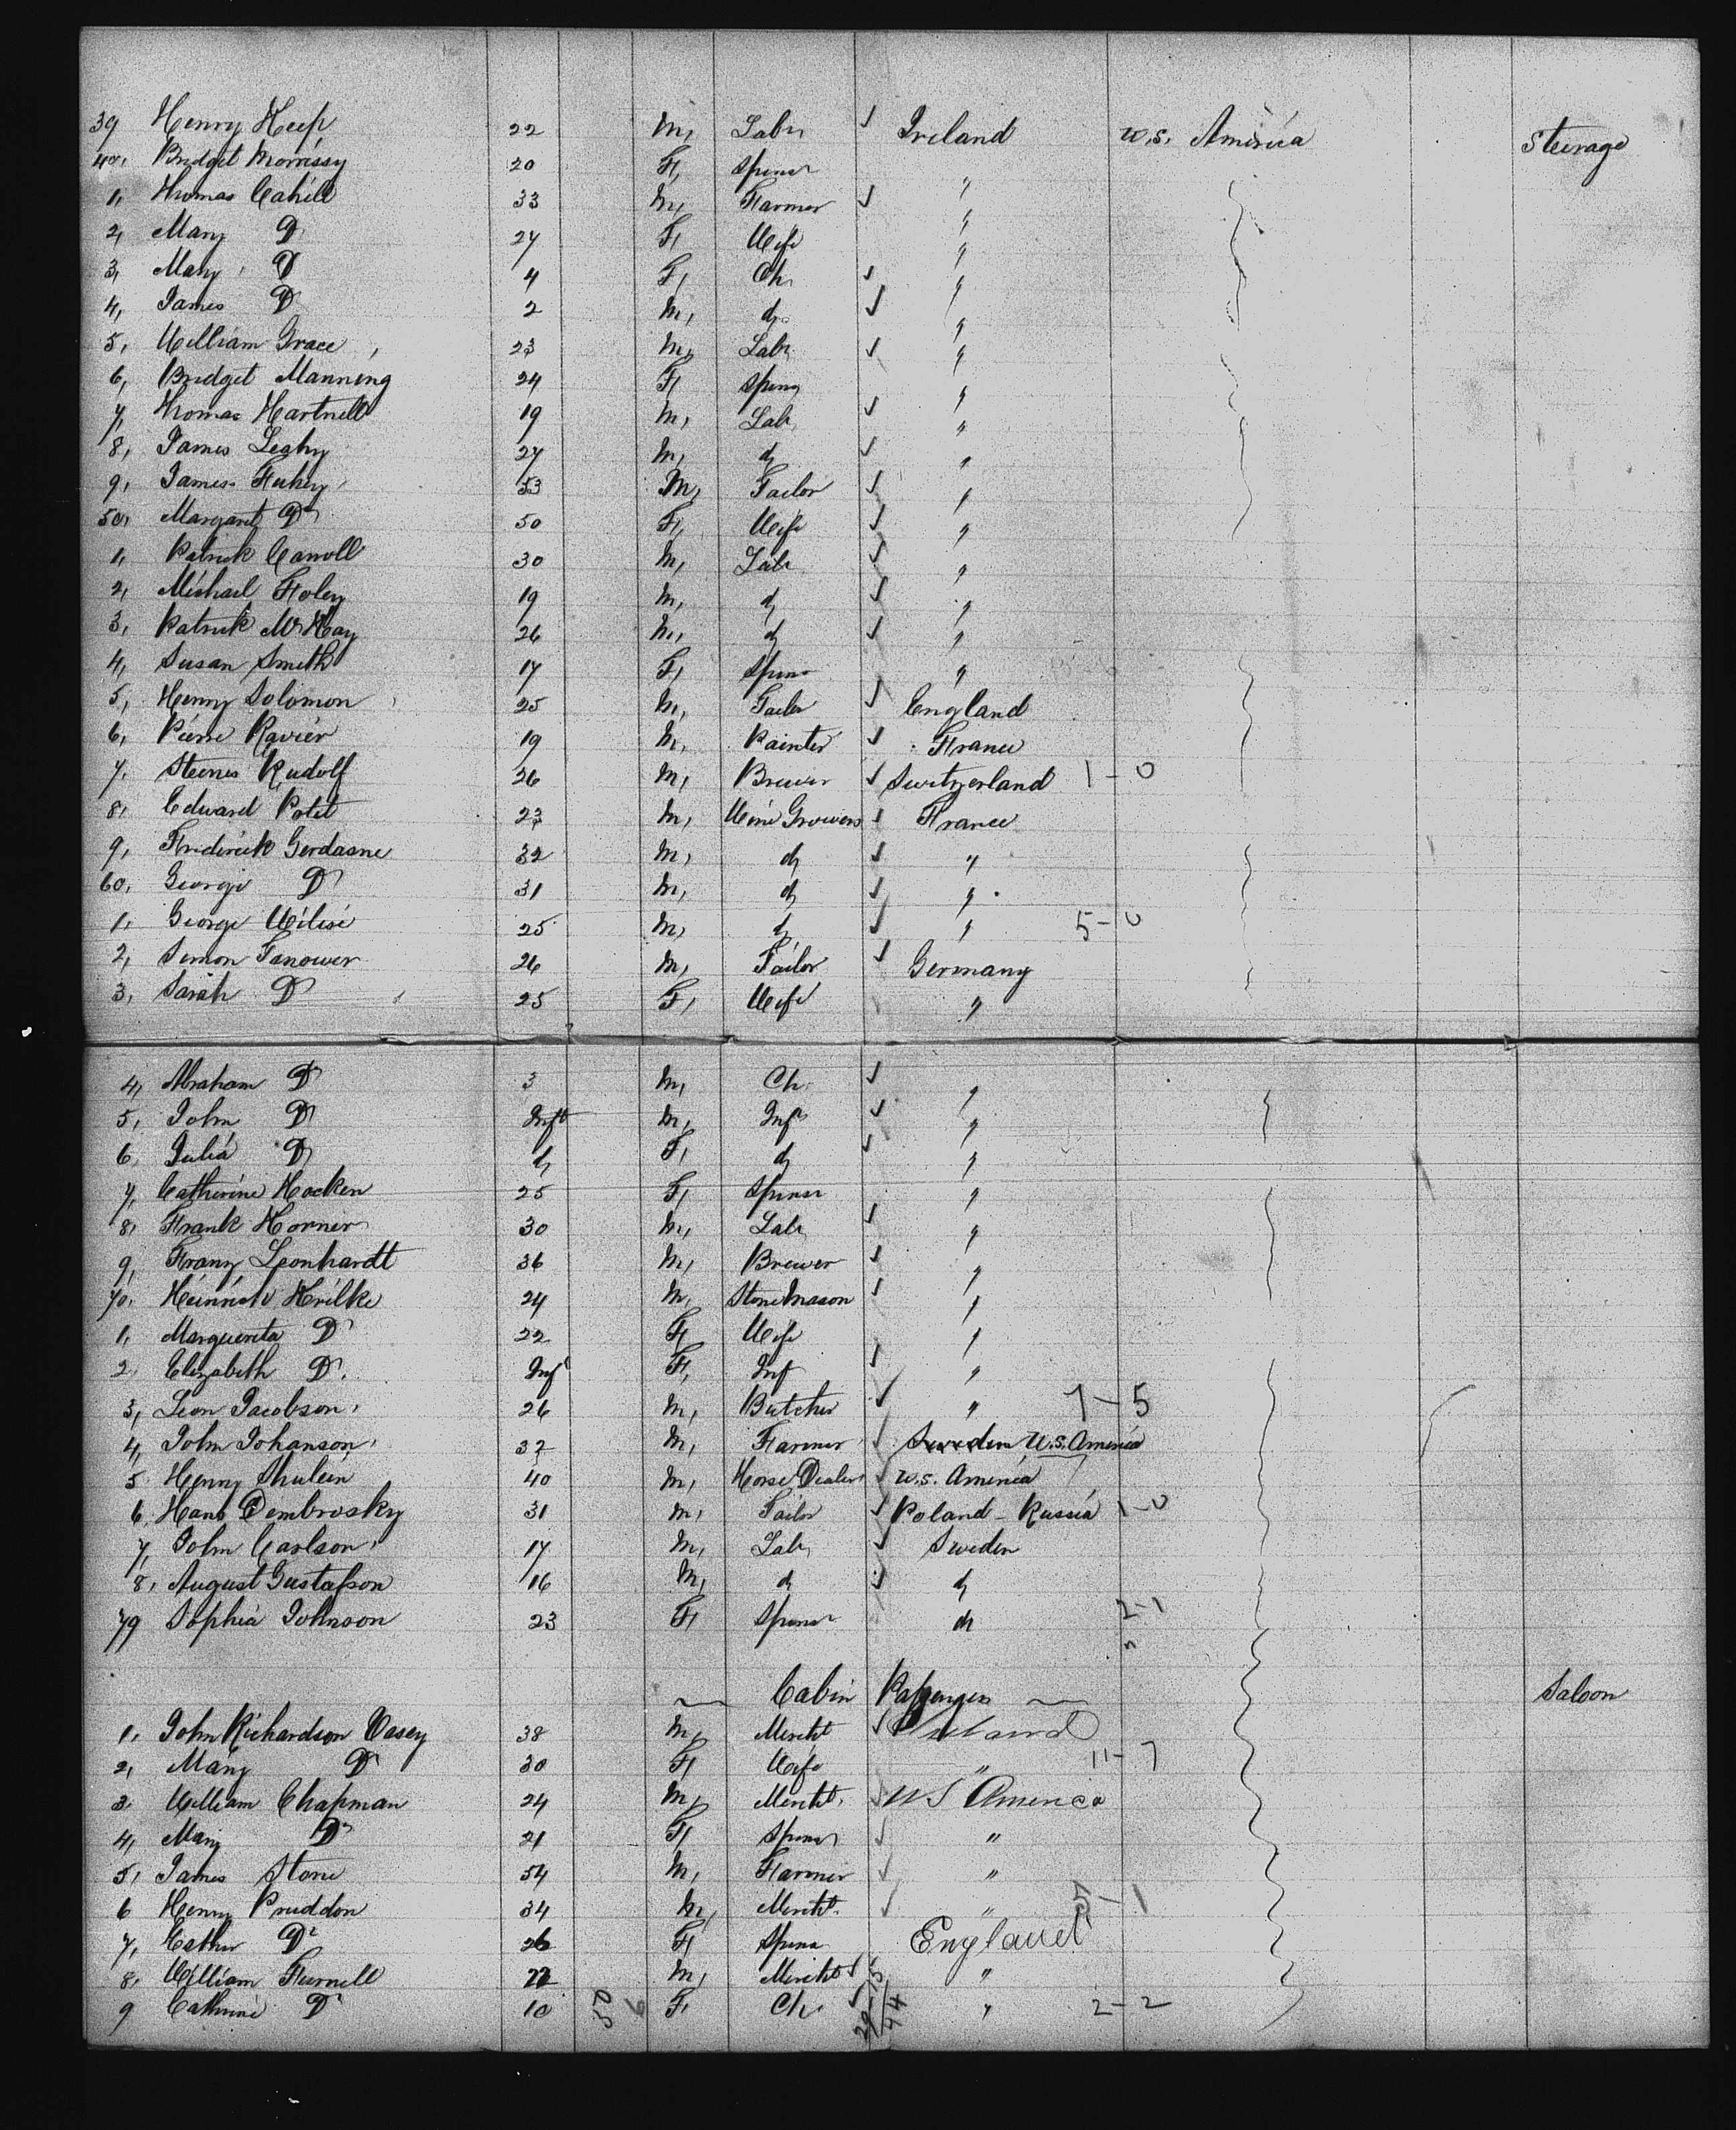 39 Henry Keefe 22 M, Labr ✓ Ireland U.S. America Steerage
40, Bridget Morrissy 20 F, Spinsr "
1, Thomas Cahill 33 M, Farmer ✓ "
2, Mary Do 27 F, Wife "
3, Mary Do 4 F, Ch. ✓ "
4, James Do 2 M, do ✓ "
5, William Grace 23 M, Labr ✓ "
6, Bridget Manning 24 F, Spinsr "
7, Thomas Hartnell 19 M, Labr ✓ "
8, James Leahy 27 M, do ✓ "
9, James Fuhey 53 M, Tailor ✓ "
50, Margaret Do 50 F, Wife ✓ "
1, Patrick Carroll 30 M, Labr ✓ "
2, Michael Foley 19 M, do ✓ "
3, Patrick McKay 26 M, do ✓ "
4, Susan Smith 17 F, Spinsr "
5, Henry Solomon 25 M, Tailor ✓ England
6, Pierre Ravier 19 M, Painter ✓ France
7, Rudolf 26 M, Brewer ✓ Switzerland 1-0
8, Edward Potit 23 M, Wine Growers ✓ France
9, Frederick Gerdasne 32 M, do ✓ "
60, George Do 31 M, do ✓ "
1, George 25 M, do ✓ " 5-0
2, Simon Tanower 26 M, Tailor ✓ Germany
3, Sarah Do 25 F, Wife "
4, Abraham Do 3 M, Ch. ✓ "
5, John Do Inft M, Inft ✓ "
6, Julia Do do F, do ✓ "
7, Catherine Hocken 25 F, Spinsr "
8, Frank Horner 30 M, Labr ✓ "
9, Franz Leonhardt 36 M, Brewer ✓ "
70, Heinrich 24 M, Stone Mason ✓ "
1, Marguerita Do 22 F, Wife "
2, Elizabeth Do Inf F, Inf ✓ "
3, Leon Jacobson 26 M, Butcher ✓ " 7-5
4, John Johanson 32 M, Farmer ✓ Sweden U.S. America
5 Henry Shulein 40 M, Horse Dealer ✓ U.S. America
6, Hans Dembrosky 31 M, Tailor ✓ Poland - Russia 1-0
7, John Carlson 17 M, Labr ✓ Sweden
8, August Gustafson 16 M, do ✓ do
79 Sophia Johnson 23 F, Spinsr do 2-1
Cabin Passengers Saloon
1, John Richardson Vesey 38 M, Mercht ✓ Ireland
2, Mary Do 30 F, Wife " 11-7
3, William Chapman 24 M, Mercht. ✓ U S America
4, Mary Do 21 F, Spinsr ✓ "
5, James Stone 54 M, Farmer ✓ "
6 Henry Pruddon 34 M, Mercht. ✓ " 5-1
7, Esther Do 26 F, Spinsr England
8, William Furnell 22 M, Mercht ✓ "
9 Catherine Do 10 50 6 F, Ch. 29-15 44 " 2-2